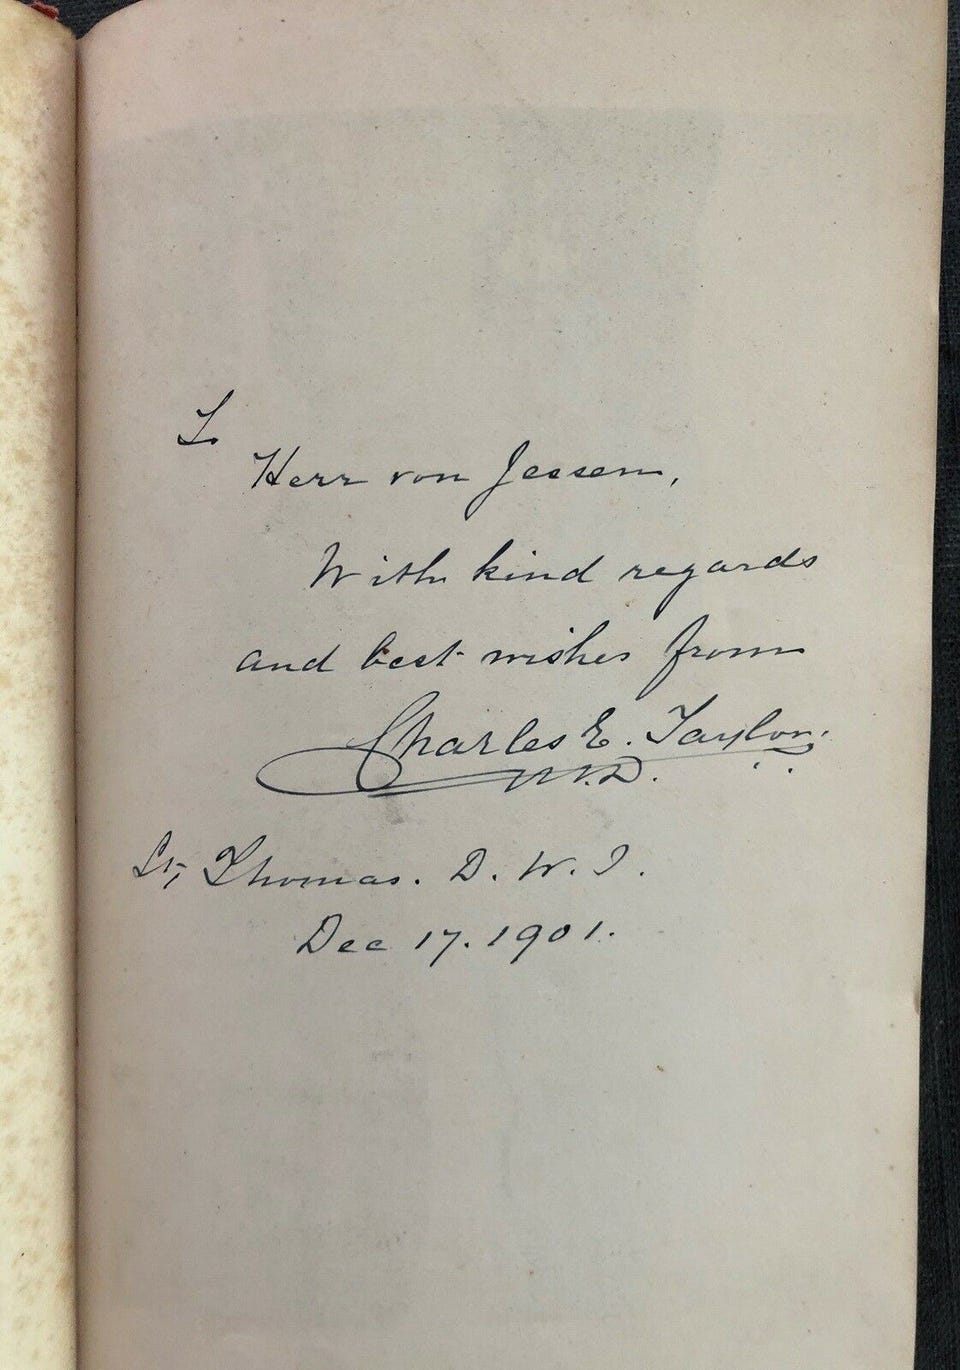 To
Herr von Jessen,
With kind regards
and best wishes from
Charles E. Taylor.
M.D.
St, Thomas. D. W. I.
Dec 17. 1901.